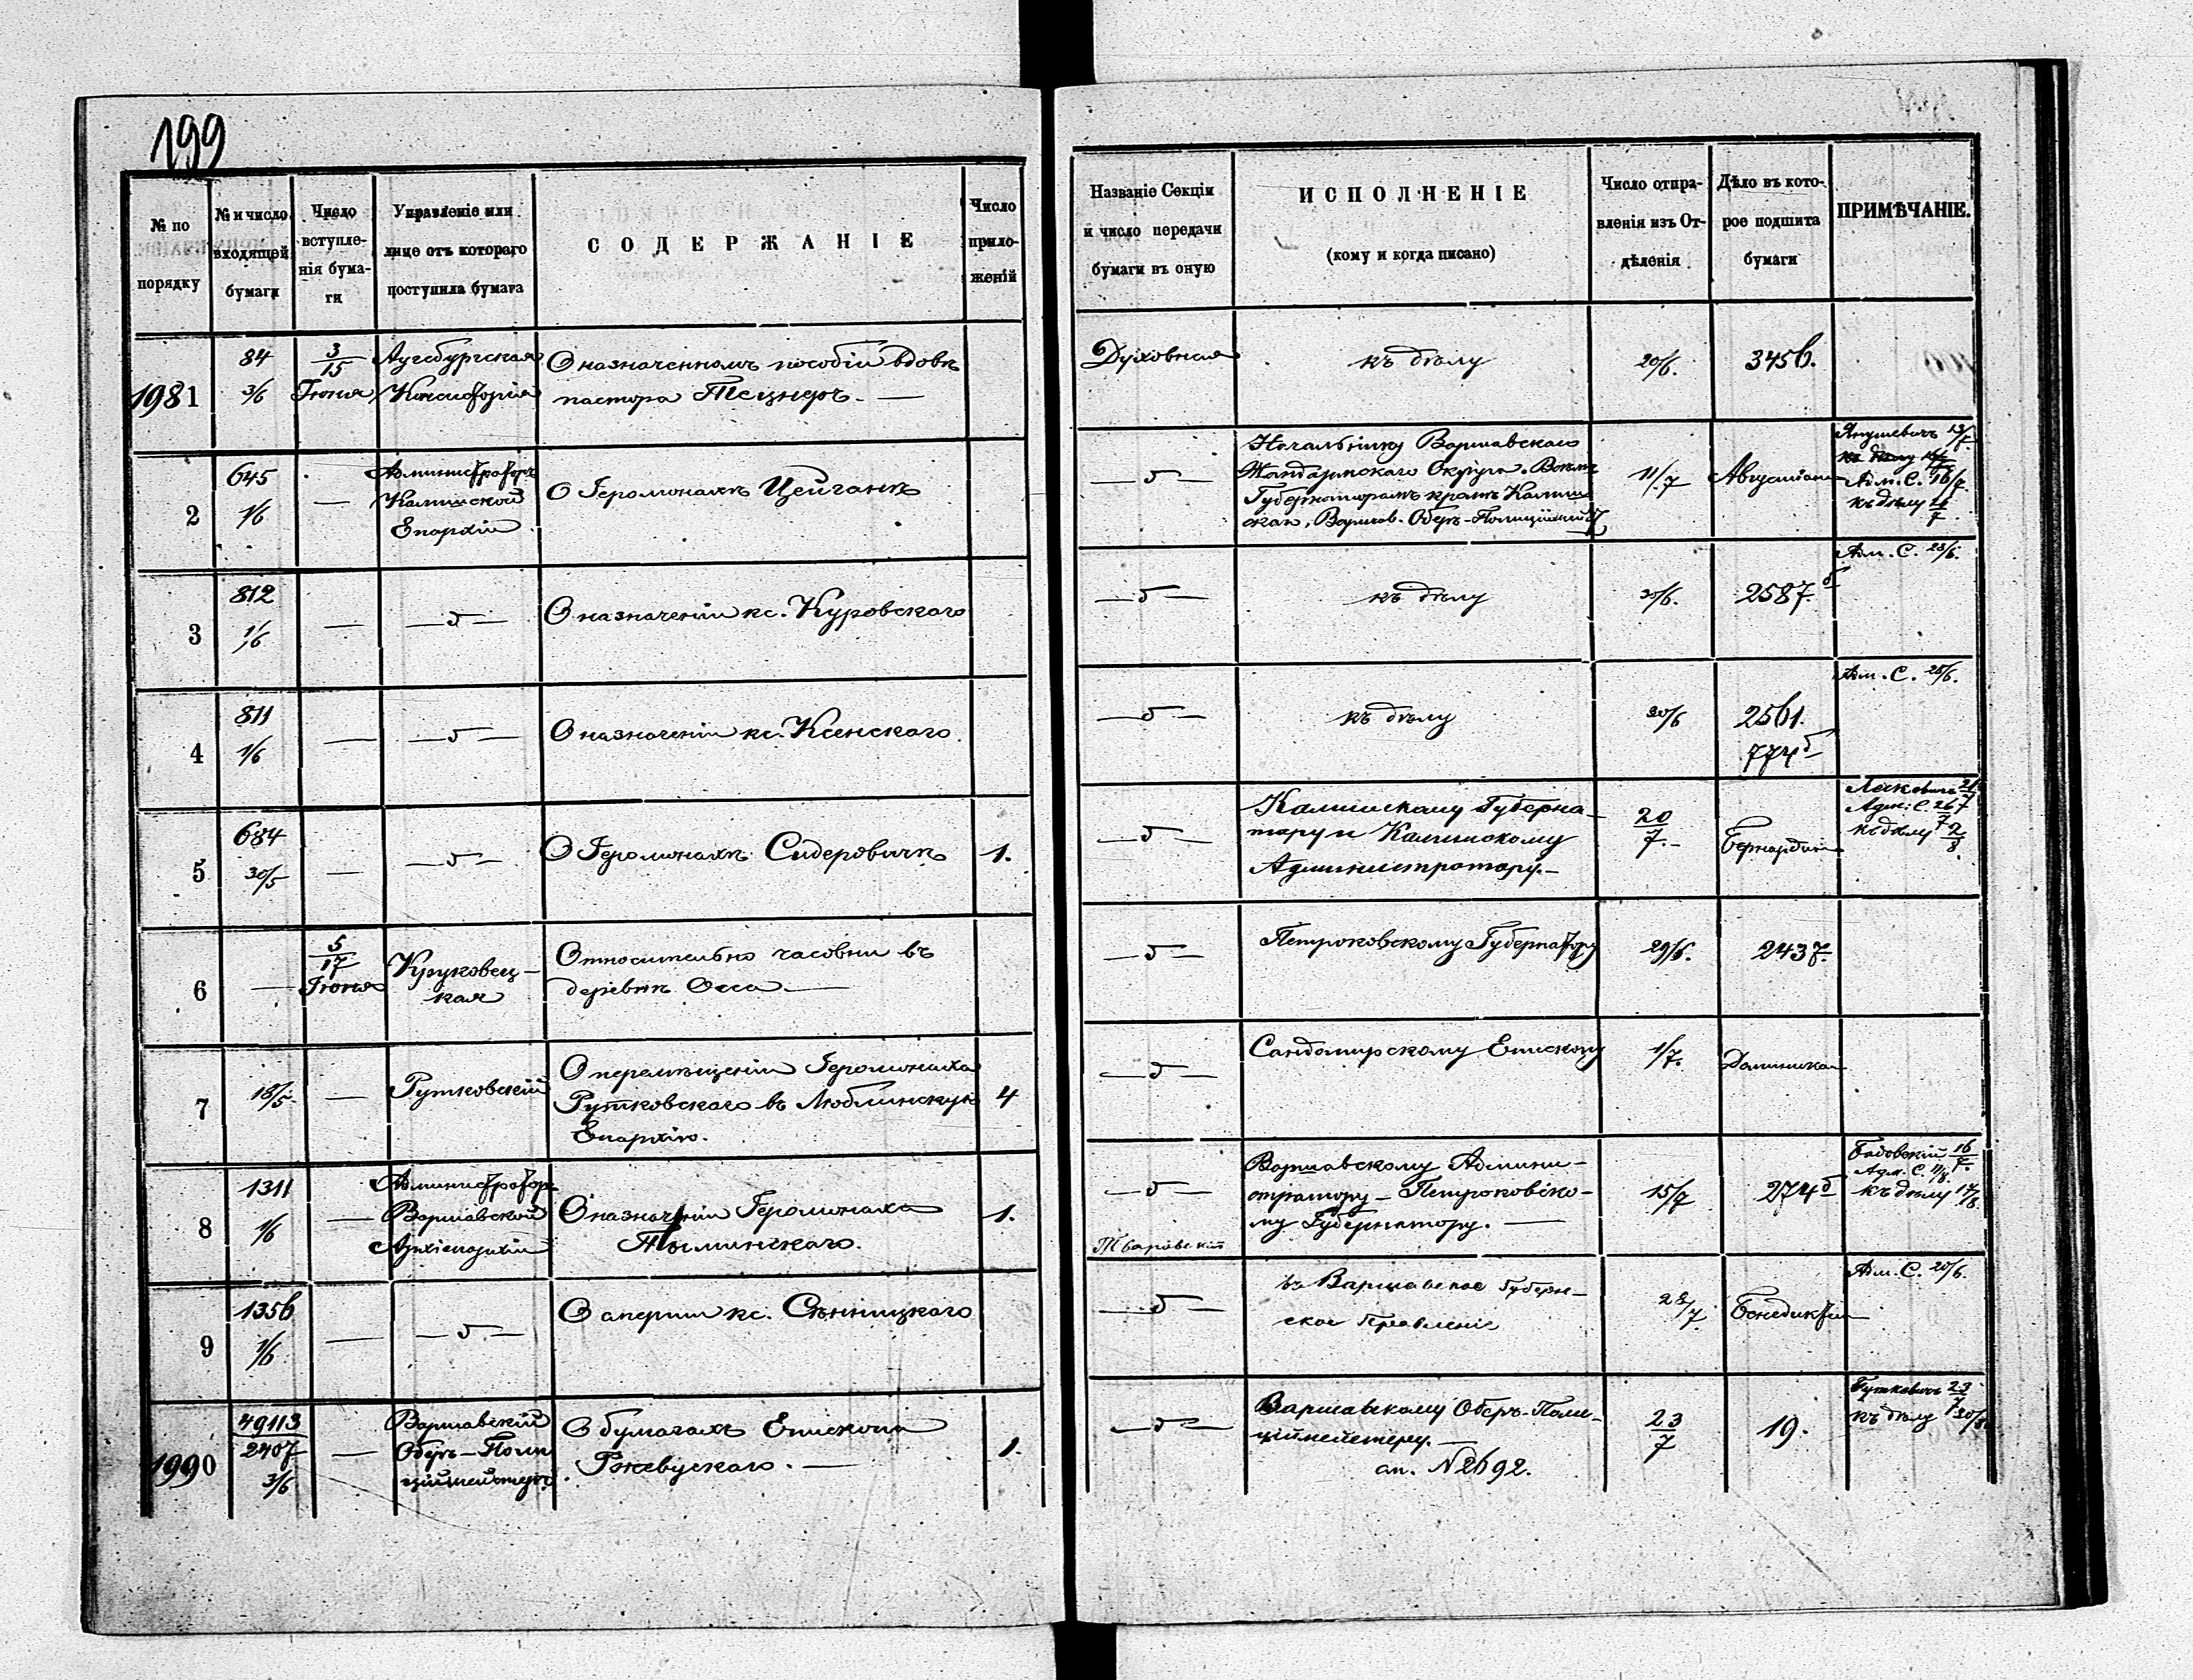 199
№ по порядку
№ и число входящей бумаги
Число вступле-
нія бума-
ги
Управленіе или
лице отъ котораго
поступила бумага
СОДЕРЖАНІЕ
Число
прило-
женій
Названіе Секціи
и число передачи
бумаги въ оную
ИСПОЛНЕНІЕ
(кому и когда писано)
Число отпра-
вленія изъ От-
дѣленія
Дѣло въ кото-
рое подшита
бумаги
ПРИМѢЧАНІЕ.
1981
84
3/6
3/15
Іюня
Аугсбургская
Консисторія
О назначенномъ пособіи вдовѣ
пастора
Духовная
къ дѣлу
20/6.
3456.
2
645
1/6
—
Администраторъ
Калишской
Епархіи
О Іеромонахѣ Цейганѣ
— б —
Начальнику Варшавскаго
Жандармскаго Округа.
Губернаторамъ кромѣ Калиш
скаго, Варшав. Оберъ-Полиціймей
11/7
Августіан
Янушевичъ
къ дѣлу
Адм. С. 16/7.
къ дѣлу
3
812
1/6
—
— б —
О назначеніи кс. Куровскаго
— б —
къ дѣлу
30/6.
2587 б
Адм. С. 28/6.
4
811
1/6
—
— б —
О назначеніи кс. Ксенскаго.
— б —
къ дѣлу
30/6
2561.
774 б
Адм. С. 28/6.
5
684
30/5
—
— б —
О Іеромонахѣ Сидеровичѣ
1.
— б —
Калишскому Губерна-
тору и Калишскому
Администратору. —
20
7. —
Бернардин
Адм. С. 26/7
къ дѣлу 2/8
6
—
5/17
Іюня
Круковец-
кая
Относительно часовни въ
деревнѣ Осса. —
— б —
Петроковскому Губернатору
29/6.
2437.
7
18/5.
—
Рутковскій
О перемѣщеніи Іеромонаха
Рутковскаго въ Люблинскую
Епархію.
4
— б —
Сандомирскому Епископу
1/7.
Доминикан
8
1311
1/6
—
Администраторъ
Варшавской
Архіепархіи
О назначеніи Іеромонаха
Тыминскаго.
1.
— б —
Тваровскій
Варшавскому Админи-
стратору — Петроковско-
му Губернатору. —
15/7
274 б
Адм. С. 11/8.
къ дѣлу 17/8.
9
1356
1/6
—
— б —
О аперціи кс. Сѣнницкаго
— б —
въ Варшавское Губерн-
ское Правленіе
28/7.
Бенедиктин
Адм. С. 20/6.
1990
49113
2407
3/6
—
Варшавскій
Оберъ-Поли
ціймейстеръ.
О бумагахъ Епископа
Ржевускаго. —
1.
— б —
Варшавскому Оберъ-Поли-
ціймейстеру. —
N 2692.
23
7
19.
къ дѣлу